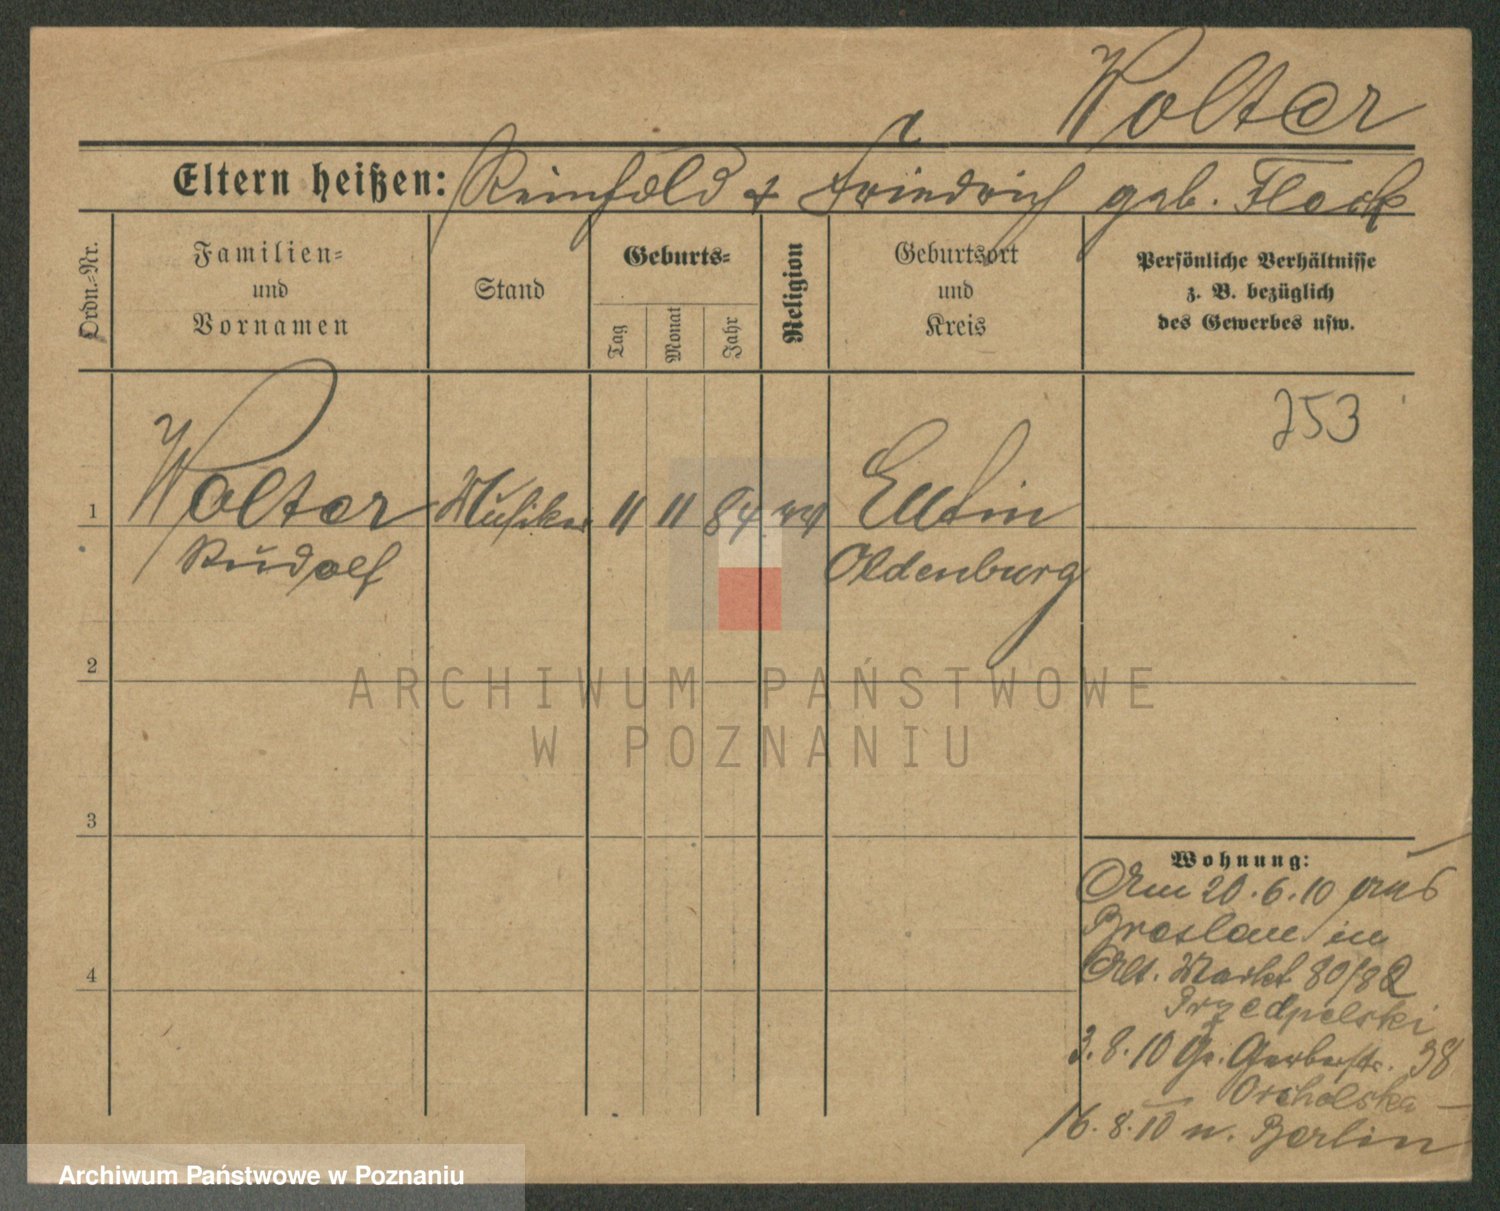 Wolter
Eltern heißen: Reinhold & Friedrich geb. Flock
Ordn.-Nr.
Familien-
und
Vornamen
Stand
Geburts-
Tag
Monat
Jahr
Religion
Geburtsort
und
Kreis
Persönliche Verhältnisse
z. B. bezüglich
des Gewerbes usw.
253
1 Wolter Musiker 11 11 84 Eutin
Rudolf Oldenburg
2
3
4
Wohnung:
Am 20.6.10 aus
Breslau in
Alt. Markt 80/82
Przedpelski
3.8.10 Gr. Gerberstr. 38
Orcholska
16.8.10 n. Berlin
ARCHIWUM PAŃSTWOWE
W POZNANIU
Archiwum Państwowe w Poznaniu